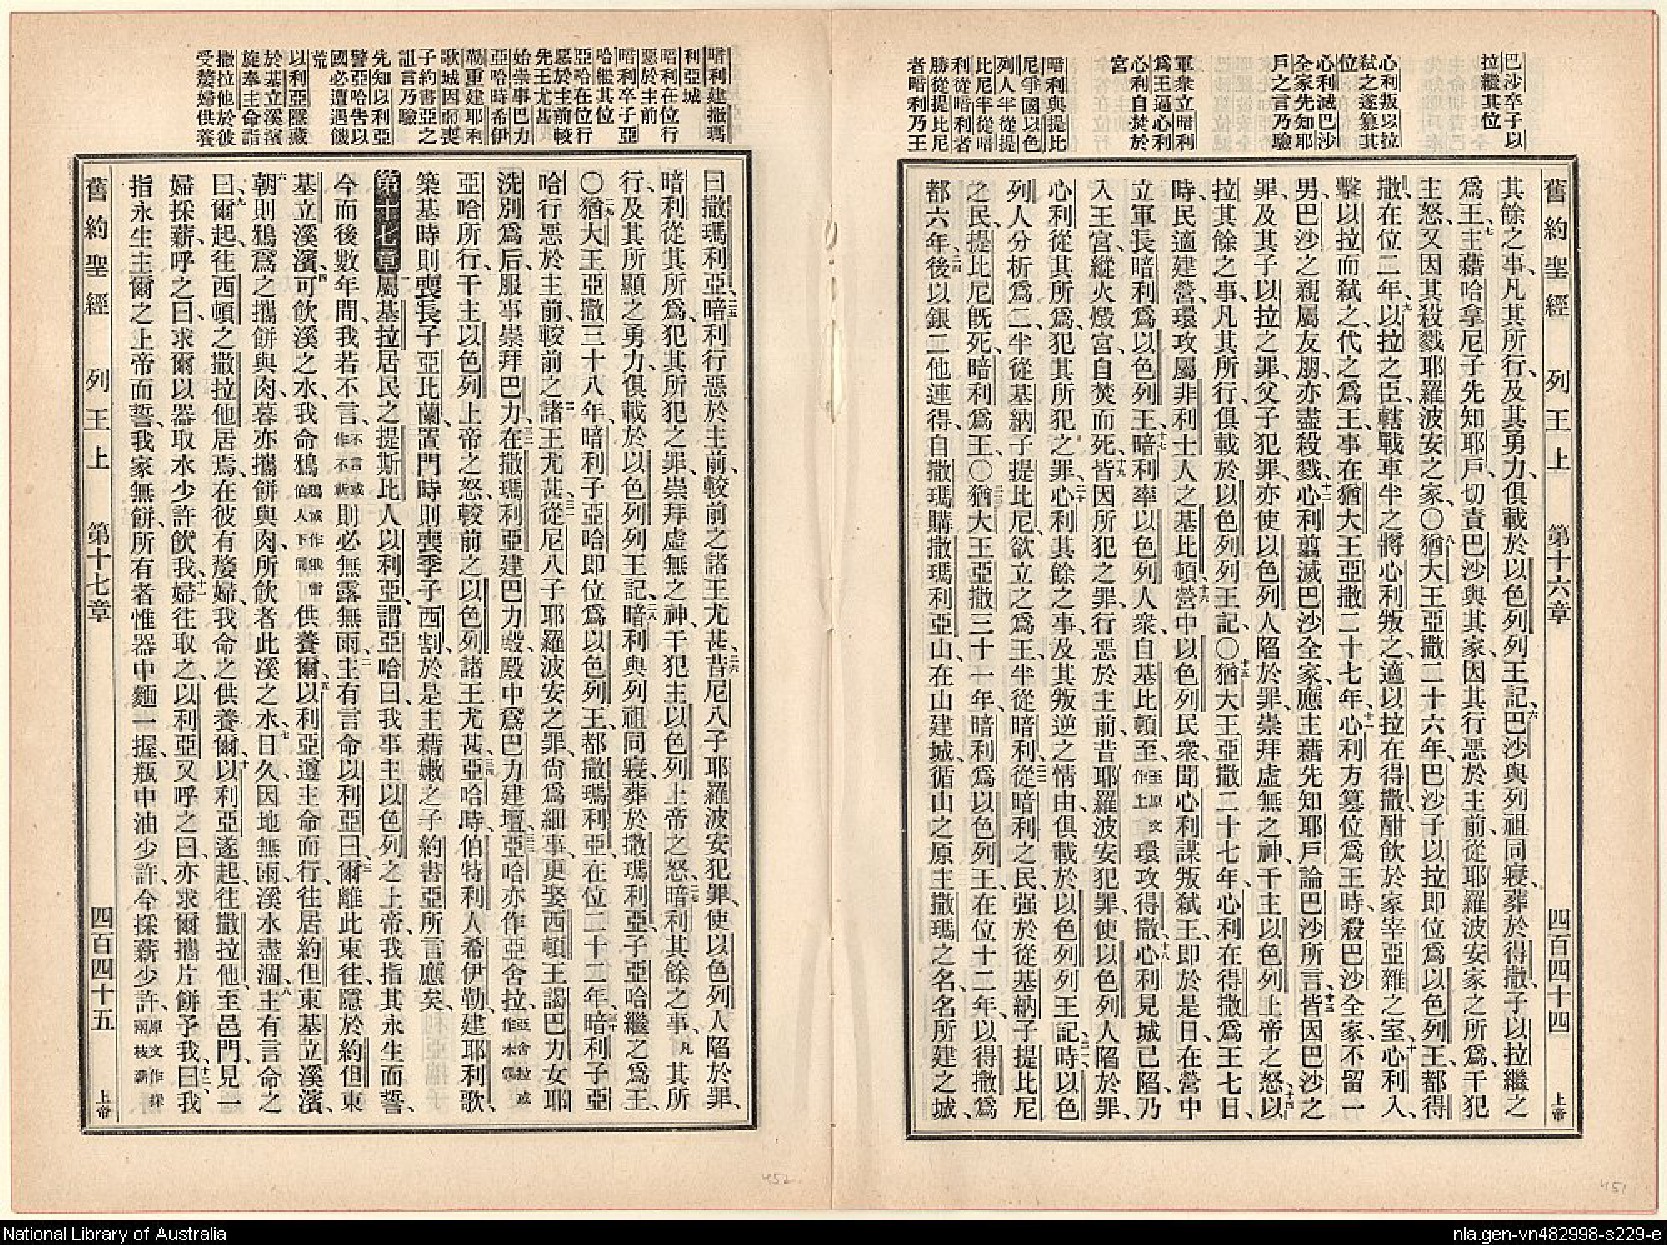 巴沙卒子以
拉繼其位
心利叛以拉
弒之遂篡其
位
心利滅巴沙
全家先知耶
戶之言乃驗
軍衆立暗利
爲王逼心利
心利自焚於
宮
暗利與提比
尼爭國以色
列人半從提
比尼半從暗
利從暗利者
勝從提比尼
者暗利乃王
舊約聖經 列王上 第十六章 四百四十四 上帝
其餘之事、凡其所行、及其勇力、俱載於以色列列王記、六巴沙與列祖同寢、葬於得撒、子以拉繼之
爲王、七主藉哈拿尼子先知耶戶、切責巴沙與其家、因其行惡於主前、從耶羅波安家之所爲、干犯
主怒、又因其殺戮耶羅波安之家、〇八猶大王亞撒二十六年、巴沙子以拉即位爲以色列王、都得
撒、在位二年、九以拉之臣、轄戰車半之將心利叛之、適以拉在得撒、酣飲於家宰亞雜之室、十心利入、
擊以拉而弒之、代之爲王、事在猶大王亞撒二十七年、十一心利方篡位爲王時、殺巴沙全家、不留一
男、巴沙之親屬友朋、亦盡殺戮、十二心利翦滅巴沙全家、應主藉先知耶戶論巴沙所言、十三皆因巴沙之
罪、及其子以拉之罪、父子犯罪、亦使以色列人陷於罪、崇拜虛無之神、干主以色列上帝之怒、十四以
拉其餘之事、凡其所行、俱載於以色列列王記、〇十五猶大王亞撒二十七年、心利在得撒爲王七日、
時民適建營、環攻屬非利士人之基比頓、十六營中以色列民衆、聞心利謀叛弒王、即於是日、在營中
立軍長暗利爲以色列王、十七暗利率以色列人衆、自基比頓至至原文作上環攻得撒、十八心利見城已陷、乃
入王宮、縱火燬宮、自焚而死、十九皆因所犯之罪、行惡於主前、昔耶羅波安犯罪、使以色列人陷於罪、
心利從其所爲、犯其所犯之罪、二十心利其餘之事、及其叛逆之情由、俱載於以色列列王記、二一時以色
列人分析爲二、半從基納子提比尼、欲立之爲王、半從暗利、二二從暗利之民、强於從基納子提比尼
之民、提比尼旣死、暗利爲王、〇二三猶大王亞撒三十一年、暗利爲以色列王、在位十二年、以得撒爲
都六年、二四後以銀二他連得、自撒瑪購撒瑪利亞山、在山建城、循山之原主撒瑪之名、名所建之城、
暗利建撒瑪
利亞城
暗利在位行
惡於主前
暗利卒子亞
哈繼其位
亞哈在位行
惡於主前較
先王尤甚
始崇事巴力
亞哈時希伊
勒重建耶利
歌城因而喪
子約書亞之
詛言乃驗
先知以利亞
警亞哈告以
國必遭遇饑
荒
以利亞隱藏
於基立溪濱
旋奉主命詣
撒拉他於彼
受嫠婦供養
曰撒瑪利亞、二五暗利行惡於主前、較前之諸王尤甚、二六昔尼八子耶羅波安犯罪、使以色列人陷於罪、
暗利從其所爲、犯其所犯之罪、崇拜虛無之神、干犯主以色列上帝之怒、二七暗利其餘之事、凡其所
行、及其所顯之勇力、俱載於以色列列王記、二八暗利與列祖同寢、葬於撒瑪利亞、子亞哈繼之爲王、
〇二九猶大王亞撒三十八年、暗利子亞哈即位爲以色列王、都撒瑪利亞、在位二十二年、三十暗利子亞
哈行惡於主前、較前之諸王尤甚、三一從尼八子耶羅波安之罪、尙爲細事、更娶西頓王謁巴力女耶
洗別爲后、服事崇拜巴力、三二在撒瑪利亞建巴力殿、殿中爲巴力建壇、三三亞哈亦作亞舍拉、亞舍拉或作木偶
亞哈所行、干主以色列上帝之怒、較前之以色列諸王尤甚、三四亞哈時、伯特利人希伊勒建耶利歌、
築基時、則喪長子亞比蘭、置門時、則喪季子西割、於是主藉嫩之子約書亞所言應矣、
第十七章 屬基拉居民之提斯比人以利亞、謂亞哈曰、我事主以色列之上帝、我指其永生而誓、
今而後數年間、我若不言、不言或作不祈則必無露無雨、二主有言命以利亞曰、三爾離此東往、隱於約但東
基立溪濱、四可飲溪之水、我命鴉鴉或作亞伯人下同供養爾、五以利亞遵主命而行、往居約但東基立溪濱、
六朝則鴉爲之攜餅與肉、暮亦攜餅與肉、所飲者此溪之水、七日久、因地無雨、溪水盡涸、八主有言命之
曰、九爾起往西頓之撒拉他居焉、在彼有嫠婦、我命之供養爾、十以利亞遂起、往撒拉他、至邑門、見一
婦採薪、呼之曰、求爾以器取水少許飲我、十一婦往取之、以利亞又呼之曰、亦求爾攜片餅予我、十二曰、我
指永生主爾之上帝而誓、我家無餅、所有者惟器中麵一握、瓶中油少許、今採薪少許、原文作採兩枝薪
舊約聖經 列王上 第十七章 四百四十五 上帝
452
451
National Library of Australia
nla.gen-vn482998-s229-e